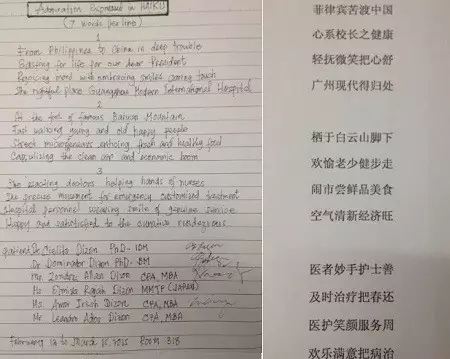 Admiration Expressed in HAIKU
(7 words per line)
1
From Philippines to China in deep trouble
for life for our dear President
more with embracing smiles caring touch
The rightful place Guangzhou Modern International Hospital
2
At the foot of famous Baiyun Mountain
Fast walking young and old happy people
Street enhancing fresh and healthy food
the clean air and economic boom
3
The doctors helping hands of nurses
The precise movement for emergency customized treatment
Hospital personnel wearing smile of genuine service
Happy and satisfied to the curative rendezvous
patient Dr. Dizon PhD-
Dr. Dominador Dizon PhD-
Mr. Allan Dizon CPA, MBA
Ms. Dizon MMIP (JAPAN)
Ms. Dizon CPA, MBA
Mr. Leandro Dizon CPA, MBA
February to March ROOM 318
菲律宾苦渡中国
心系校长之健康
轻抚微笑把心舒
广州现代得归处
栖于白云山脚下
欢愉老少健步走
闹市尝鲜品美食
空气清新经济旺
医者妙手护士善
及时治疗把春还
医护笑颜服务周
欢乐满意把病治